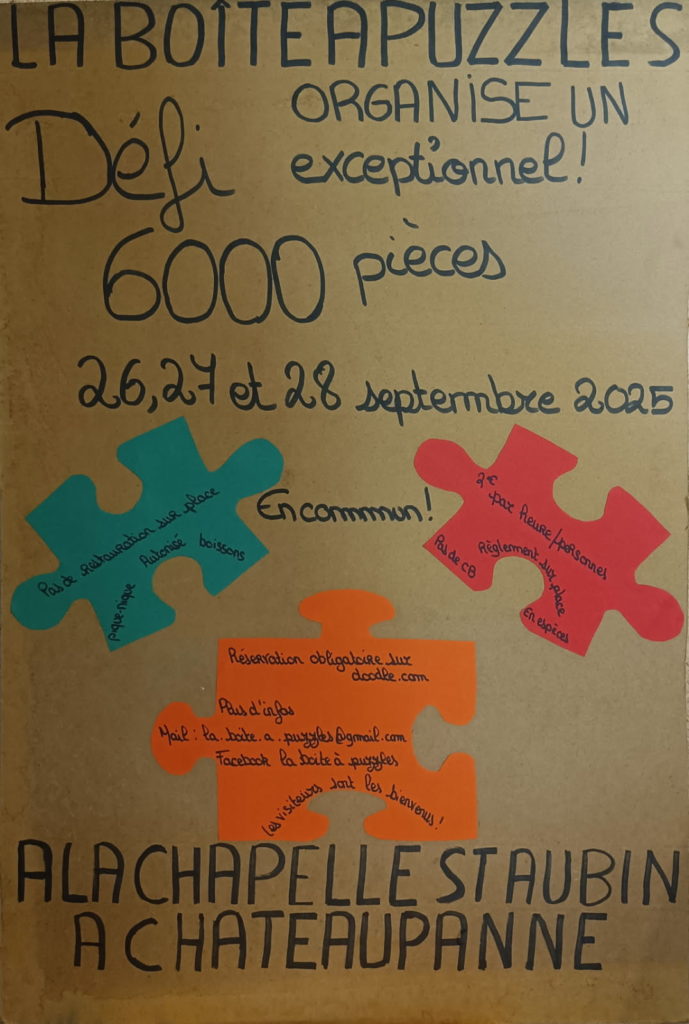 LA BOÎTE A PUZZLES
ORGANISE UN
Défi
exceptionnel!
6000 pièces
26, 27 et 28 septembre 2025
En commun!
Pas de restauration sur place
Autorisé boissons
pique-nique
2€ par heure/personnes
Règlement sur place
Pas de CB
En espèces
Réservation obligatoire sur
doodle.com
Plus d'infos
Mail : la.boite.a.puzzles@gmail.com
Facebook la boite à puzzles
Les visiteurs sont les bienvenus!
A LA CHAPELLE ST AUBIN
A CHATEAUPANNE